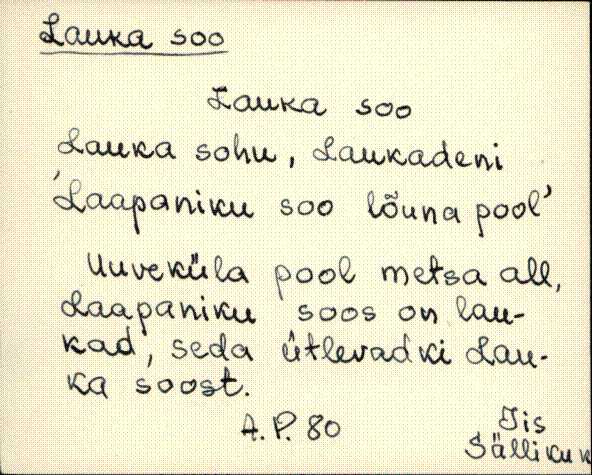 Lauka soo
Lauka soo
Lauka sohu, Laukadeni
'Laapaniku soo lõuna pool'
Uuveküla pool metsa all,
Laapaniku soos on lau-
kad, seda ütlevadki Lau-
ka soost.
A.P. 80
Iis
Sälliku k